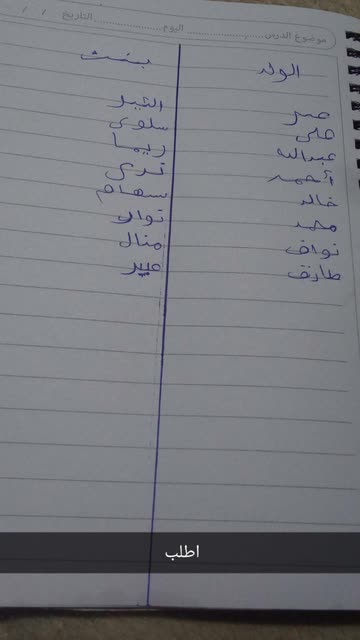 موضوع الدرس اليوم التاريخ / /
الولد بنت
سلوى
علي
عبدالله ريما
أحمد
خالد سهام
محمد نوال
نواف منال
طارق عبير
اطلب